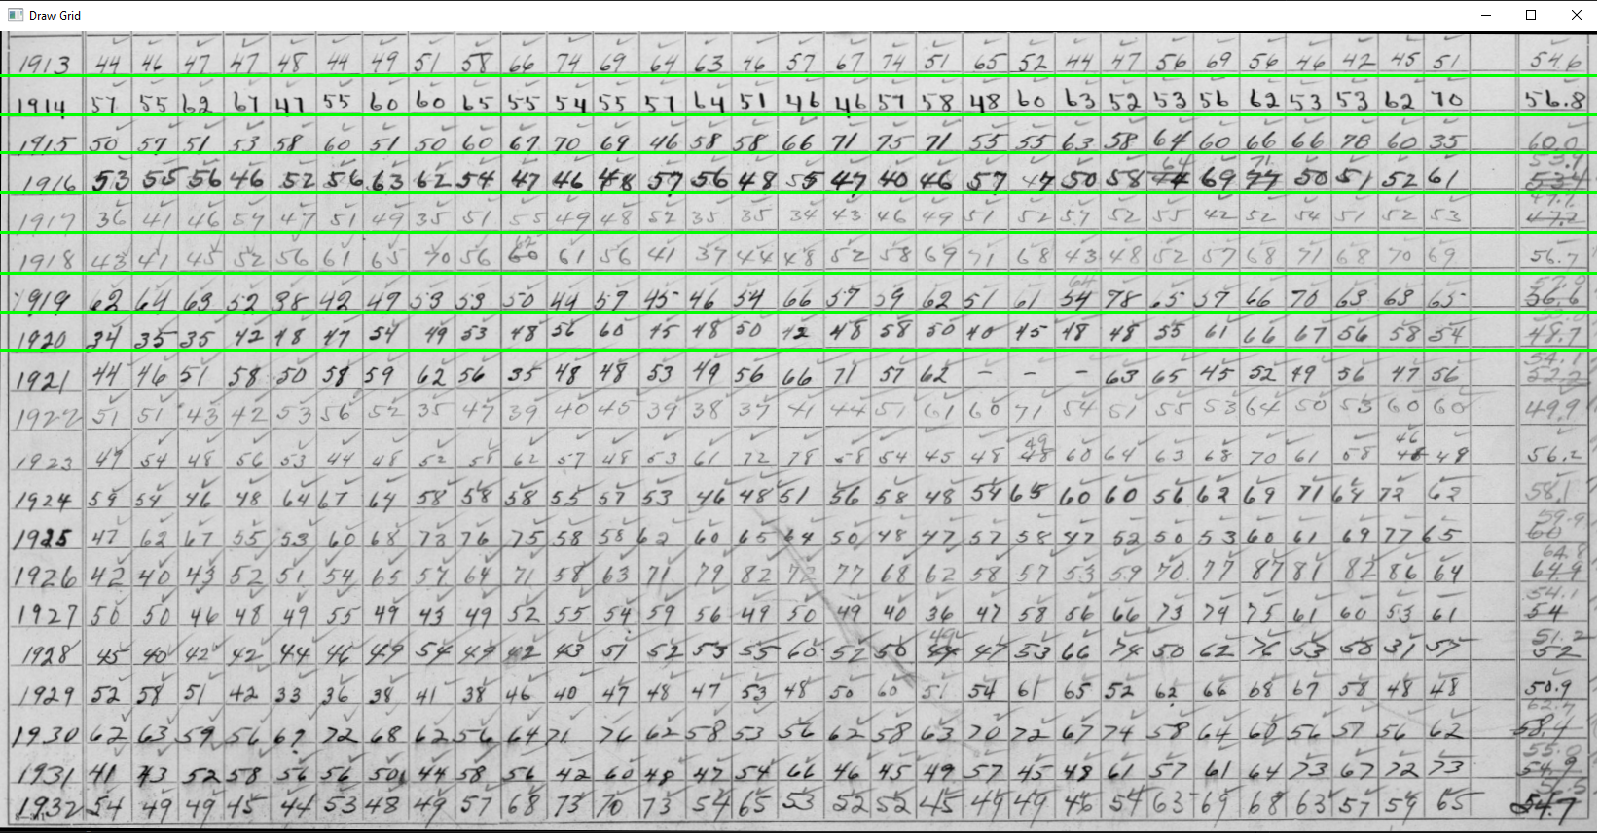 Draw Grid
1913 44 46 47 47 48 44 49 51 58 66 74 69 64 63 46 57 67 74 51 65 52 44 47 56 69 56 46 42 45 51 54.6
1914 57 55 62 67 47 55 60 60 65 55 54 55 57 64 51 46 46 57 58 48 60 63 52 53 56 62 53 53 62 70 56.8
1915 50 57 51 53 58 60 51 50 60 67 70 69 46 58 58 66 71 75 71 55 55 63 58 64 60 66 66 70 60 35 60.0
64 71 53.9
1916 53 55 56 46 52 56 63 62 54 47 46 48 57 56 48 55 47 40 46 57 47 50 58 44 69 77 50 51 52 61 53.4
47.1
1917 36 41 46 57 47 51 49 35 51 55 49 48 52 35 35 34 43 46 49 51 52 57 52 55 42 52 54 51 52 53 47.7
62
1918 43 41 45 52 56 61 65 70 56 60 61 56 41 37 44 48 52 58 69 71 68 43 48 52 57 68 71 68 70 69 56.7
64
1919 62 64 63 52 38 42 47 53 53 50 44 57 45 46 54 66 57 59 62 51 61 54 78 65 57 66 70 63 63 65 56.6
1920 34 35 35 42 48 47 54 49 53 48 56 60 45 48 50 42 48 58 50 40 45 48 48 55 61 66 67 56 58 54 48.7
54.1
1921 44 46 51 58 50 58 59 62 56 35 48 48 53 49 56 66 71 57 62 - - - 63 65 45 52 49 56 47 56 52.2
1922 51 51 43 42 53 56 52 35 47 39 40 45 39 38 37 41 44 51 61 60 71 54 51 55 53 64 50 53 60 60 49.9
49 46
1923 47 54 48 56 53 44 48 52 58 62 57 48 53 61 72 78 58 54 45 48 48 60 64 63 68 70 61 58 48 49 56.2
1924 59 54 46 48 64 67 64 58 58 58 55 57 53 46 48 51 56 58 48 54 65 60 60 56 62 69 71 64 72 62 58.1
59.9
1925 47 62 67 55 53 60 68 73 76 75 58 58 62 60 65 64 50 48 47 57 58 47 52 50 53 60 61 69 77 65 60
64.8
1926 42 40 43 52 51 54 65 57 64 71 58 63 71 79 82 72 77 68 62 58 57 53 59 70 77 87 81 82 86 64 64.9
54.1
1927 50 50 46 48 49 55 49 43 49 52 55 54 59 56 49 50 49 40 36 47 58 56 66 73 74 75 61 60 53 61 54
49 51.2
1928 45 40 42 42 44 46 49 54 49 42 43 51 52 55 55 60 52 50 44 47 53 66 74 50 62 76 53 58 31 57 52
1929 52 58 51 42 33 36 38 41 38 46 40 47 48 47 53 48 50 60 51 54 61 65 52 62 66 68 67 58 48 48 50.9
1930 62 63 59 56 67 72 68 62 56 64 71 76 62 58 53 56 62 58 63 70 72 67 74 58 64 60 56 57 56 62 58.4
55.0
1931 41 43 52 58 56 56 50 44 58 56 42 60 48 47 54 66 46 45 49 57 45 48 61 57 61 64 73 67 72 73 54.9
1932 54 49 49 45 44 53 48 49 57 68 73 70 73 54 65 53 52 52 45 49 49 46 54 63 69 68 63 57 59 65 54.7